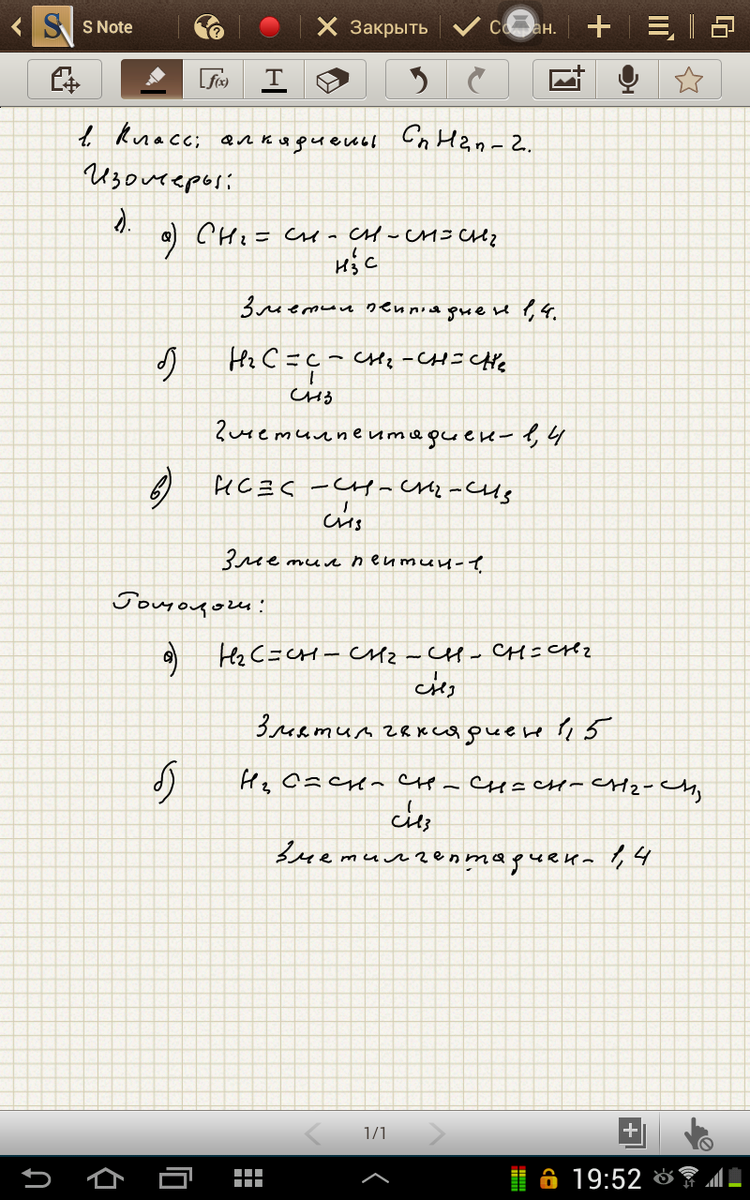 S Note
Закрыть
Сохран.
f(x)
T
1. Класс: алкадиены CnH2n-2.
Изомеры:
1). а) CH2 = CH - CH - CH = CH2
H3C
3метил пентадиен 1,4.
б) H2C = C - CH2 - CH = CH2
CH3
2метилпентадиен - 1,4
в) HC ≡ C - CH - CH2 - CH3
CH3
3метил пентин-1.
Гомологи:
а) H2C = CH - CH2 - CH - CH = CH2
CH3
3метилгексадиен 1,5
б) H2C = CH - CH - CH = CH - CH2 - CH3
CH3
3метилгептадиен - 1,4
1/1
19:52